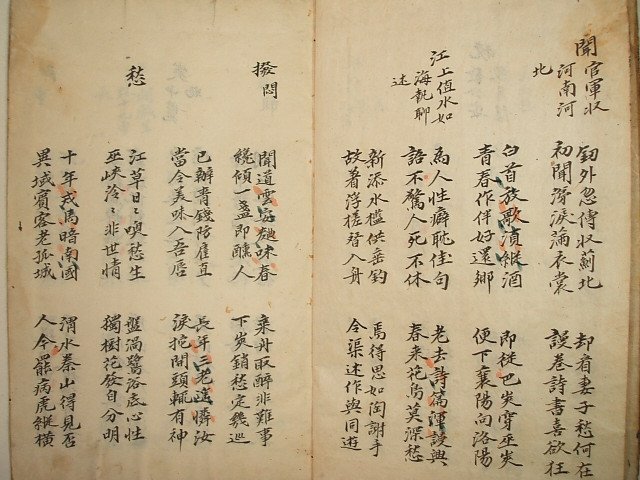 聞官軍収
河南河
北
釼外忽傳収薊北
初聞涕淚滿衣裳
却看妻子愁何在
謾卷詩書喜欲狂
白首放歌須縱酒
青春作伴好還鄉
即從巴峽穿巫峽
便下襄陽向洛陽
江上值水如
海勢聊
述
為人性癖耽佳句
語不驚人死不休
老去詩篇渾謾與
春來花鳥莫深愁
新添水檻供垂釣
故著浮槎替入舟
焉得思如陶謝手
令渠述作與同遊
撥悶
聞道雲安麹味春
纔傾一盞即醺人
乘舟取醉非難事
下峽銷愁定幾巡
已辦青錢防雇直
當令美味入吾唇
長年三老遙憐汝
捩柁開頭輒有神
愁
江草日〻喚愁生
巫峽泠〻非世情
盤渦鷺浴底心性
獨樹花發自分明
十年戎馬暗南國
異域賓客老孤城
渭水秦山得見否
人今罷病虎縱橫